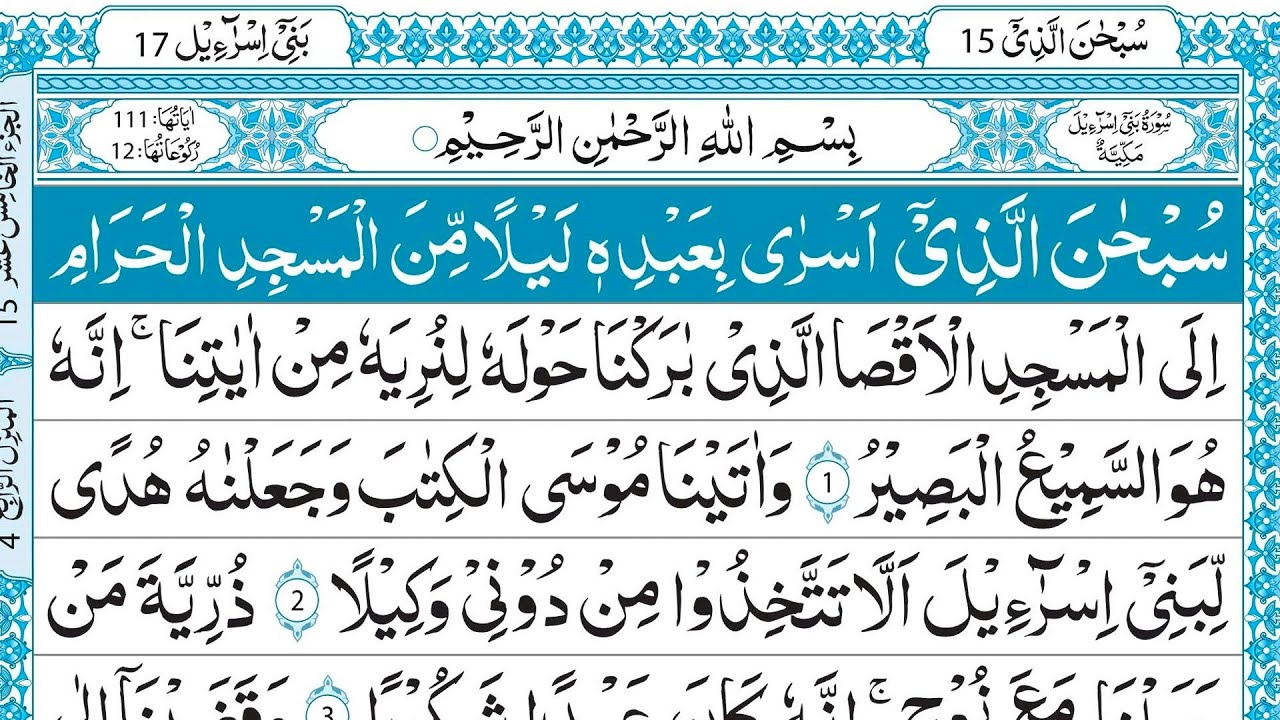 سُبْحٰنَ الَّذِیْۤ 15
بَنِیْۤ اِسْرَآءِیْل 17
سُوْرَةُ بَنِیْۤ اِسْرَآءِیْلَ
مَكِّیَّةٌ
بِسْمِ اللّٰهِ الرَّحْمٰنِ الرَّحِیْمِ
اٰیَاتُهَا: 111
رُكُوْعَاتُهَا: 12
سُبْحٰنَ الَّذِیْۤ اَسْرٰی بِعَبْدِهٖ لَیْلًا مِّنَ الْمَسْجِدِ الْحَرَامِ
اِلَی الْمَسْجِدِ الْاَقْصَا الَّذِیْ بٰرَكْنَا حَوْلَهٗ لِنُرِیَهٗ مِنْ اٰیٰتِنَا ۚ اِنَّهٗ
هُوَ السَّمِیْعُ الْبَصِیْرُ 1 وَاٰتَیْنَا مُوْسَی الْكِتٰبَ وَجَعَلْنٰهُ هُدًی
لِّبَنِیْۤ اِسْرَآءِیْلَ اَلَّا تَتَّخِذُوْا مِنْ دُوْنِیْ وَكِیْلًا 2 ذُرِّیَّةَ مَنْ
مَعَ نُوْحٍ ۚ اِنَّهٗ كَانَ عَبْدًا شَكُوْرًا 3 وَقَضَیْنَاۤ اِلٰی
الجزء الخامس عشر 15
المنزل الرابع 4